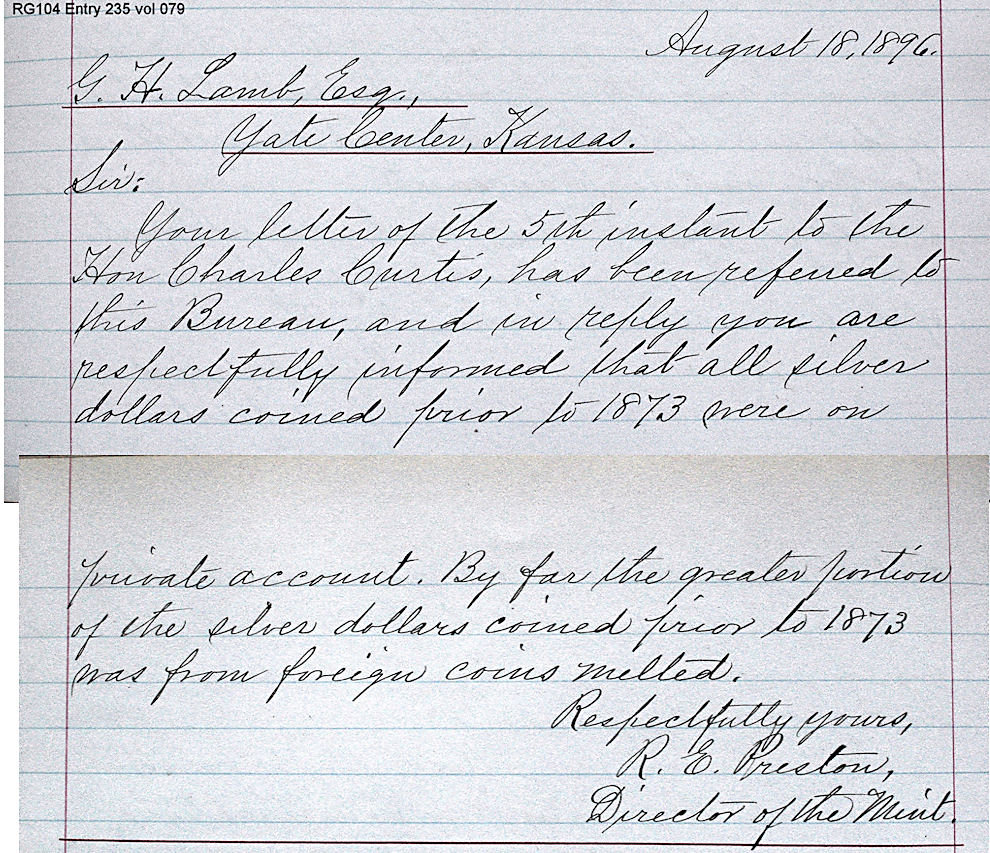 RG104 Entry 235 vol 079
August 18, 1896.
G. H. Lamb, Esq.,
Yate Center, Kansas.
Sir:
Your letter of the 5th instant to the
Hon Charles Curtis, has been referred to
this Bureau, and in reply you are
respectfully informed that all silver
dollars coined prior to 1873 were on
private account. By far the greater portion
of the silver dollars coined prior to 1873
was from foreign coins melted.
Respectfully yours,
R. E. Preston,
Director of the Mint.